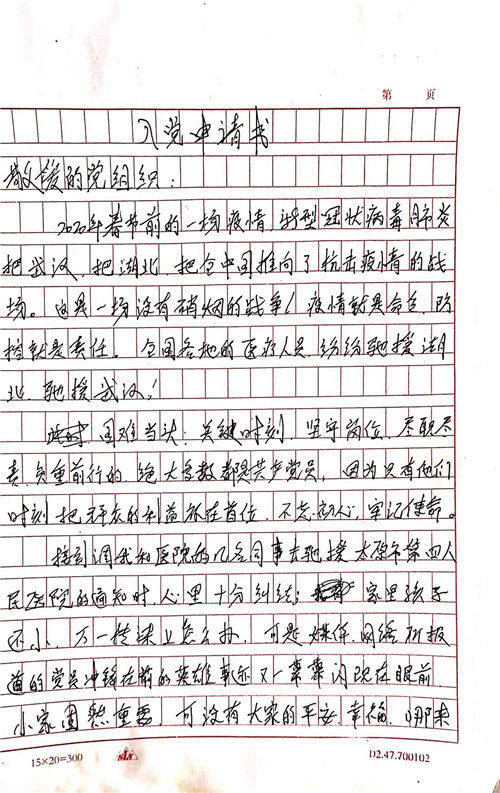 第 页
入党申请书
敬爱的党组织:
2020年春节前的一场疫情,新型冠状病毒肺炎
把武汉,把湖北,把全中国推向了抗击疫情的战
场。这是一场没有硝烟的战争!疫情就是命令,防
控就是责任。全国各地的医疗人员,纷纷驰援湖
北,驰援武汉!
困难当头,关键时刻,坚守岗位,尽职尽
责,负重前行的,绝大多数都是共产党员,因为只有他们
时刻把群众的利益放在首位,不忘初心,牢记使命。
接到调我和医院的几名同事去驰援太原市第四人
民医院的通知时,心里十分纠结;家里孩子
还小,万一传染上怎么办,可是媒体,网络所报
道的党员冲锋在前的英雄事迹又一幕幕闪现在眼前
小家固然重要,可没有大家的平安,幸福,哪来
15×20=300
D2.47.700102